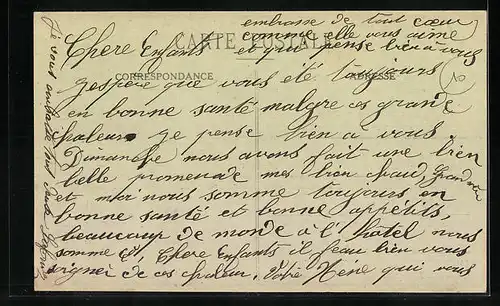 Chere Enfants
CARTE POSTALE
CORRESPONDANCE
ADRESSE
jespere que vous été toujours
en bonne santé malgre ces grande
chaleur je pense bien a vous.
Dimanche nous avons fait une bien
belle promenade mes bien chaud, Grand mère
et moi nous somme toujours en
bonne santé et bonne appétits,
beaucoup de monde à l'hotel nous
somme Chere Enfants il feau bien vous
soigner de ces chaleur. Votre qui vous
embrasse de tout cœur
comme elle vous aime
et qui pense bien a vous
Je vous embrasse tout